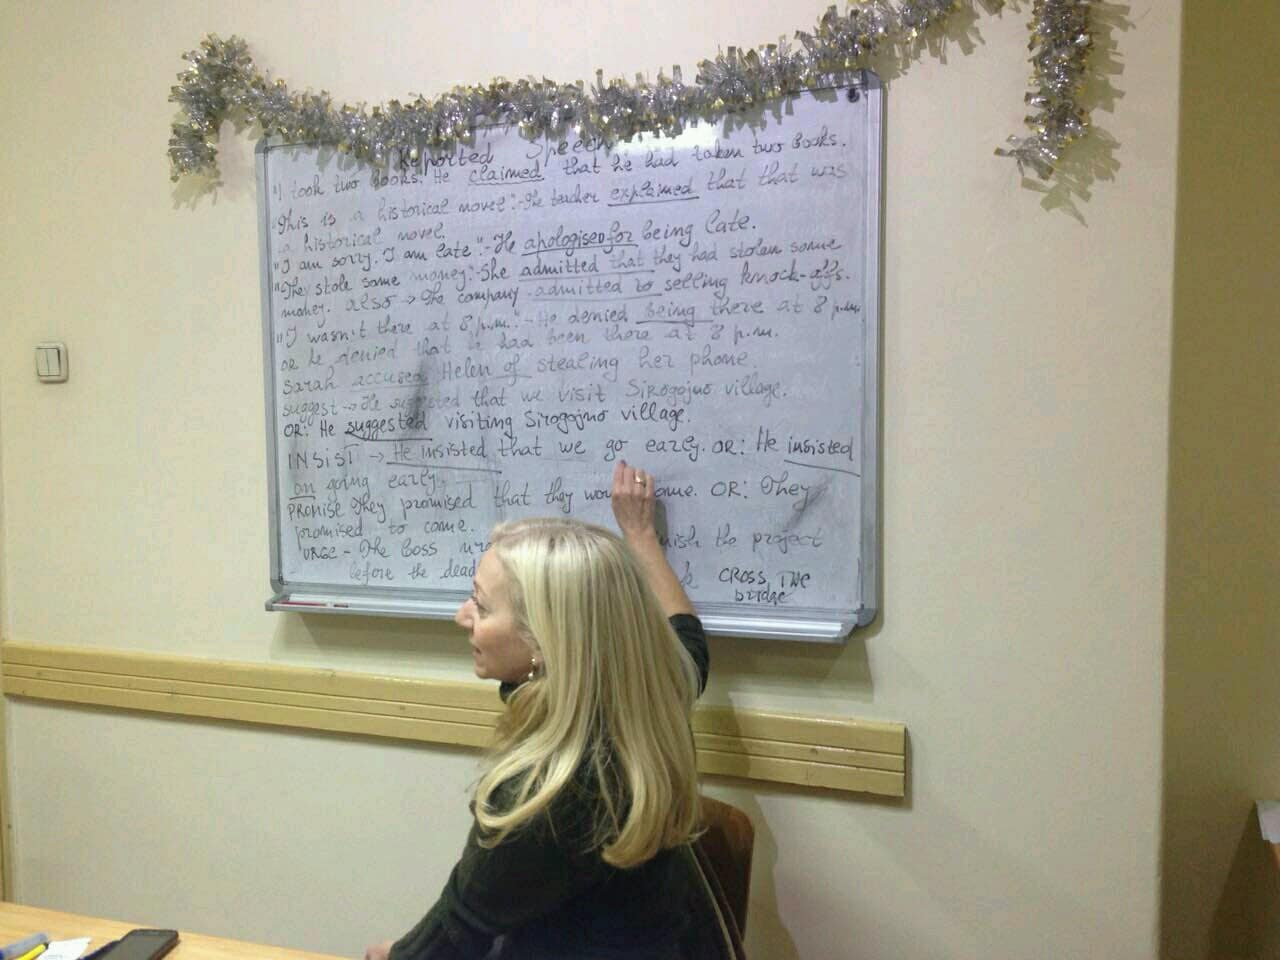 Reported Speech
"I took two books. He claimed that he had taken two books.
"This is a historical novel".-The teacher explained that that was
a historical novel.
"I am sorry. I am late".-He apologised for being late.
"They stole some money".-She admitted that they had stolen some
money. also → The company admitted to selling knock-offs.
"I wasn't there at 8 p.m."-He denied being there at 8 p.m.
OR he denied that he had been there at 8 p.m.
Sarah accused Helen of stealing her phone.
suggest → He suggested that we visit Sirogojno village.
OR: He suggested visiting Sirogojno village.
INSIST → He insisted that we go early. OR: He insisted
on going early.
PROMISE They promised that they would come. OR: They
promised to come.
URGE - The boss the project
before the CROSS THE
bridge